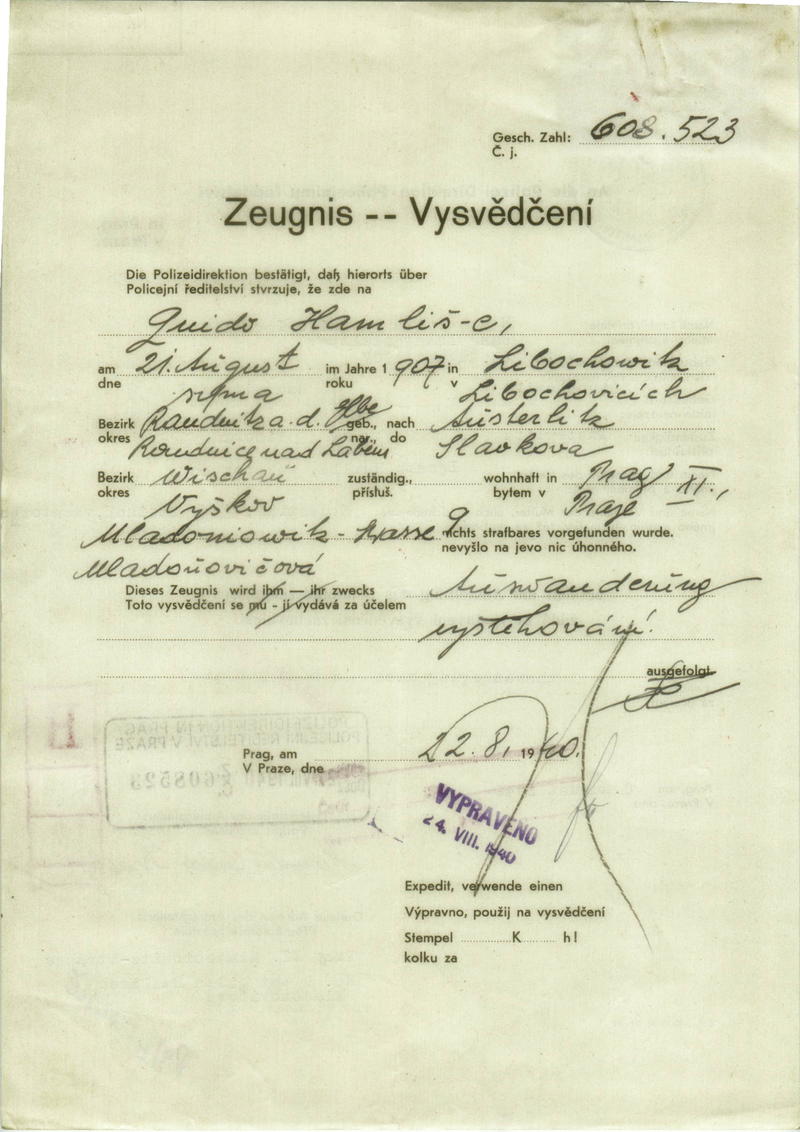 Gesch. Zahl: 608.523
Č. j.
Zeugnis -- Vysvědčení
Die Polizeidirektion bestätigt, daß hierorts über
Policejní ředitelství stvrzuje, že zde na
Guido Hamliš-c,
am 21. August im Jahre 1907 in Libochowitz
dne srpna roku v Libochovicích
Bezirk Raudnitz a. d. Elbe geb., nach Austerlitz
okres Roudnice nad Labem nar., do Slavkova
Bezirk Wischau zuständig., wohnhaft in Prag XI.,
okres Vyškov přísluš. bytem v Praze
Mladoniowitz-strasse 9 nichts strafbares vorgefunden wurde.
nevyšlo na jevo nic úhonného.
Mladoňovičová
Dieses Zeugnis wird ihm — ihr zwecks Auswanderung
Toto vysvědčení se mu - jí vydává za účelem
vystěhování.
ausgefolgt
Prag, am 22. 8. 1940.
V Praze, dne
VYPRAVENO
24. VIII. 1940
Expedit, verwende einen
Výpravno, použij na vysvědčení
Stempel K h!
kolku za
POLIZEIDIREKTION IN PRAG
POLICEJNÍ ŘEDITELSTVÍ V PRAZE
608523